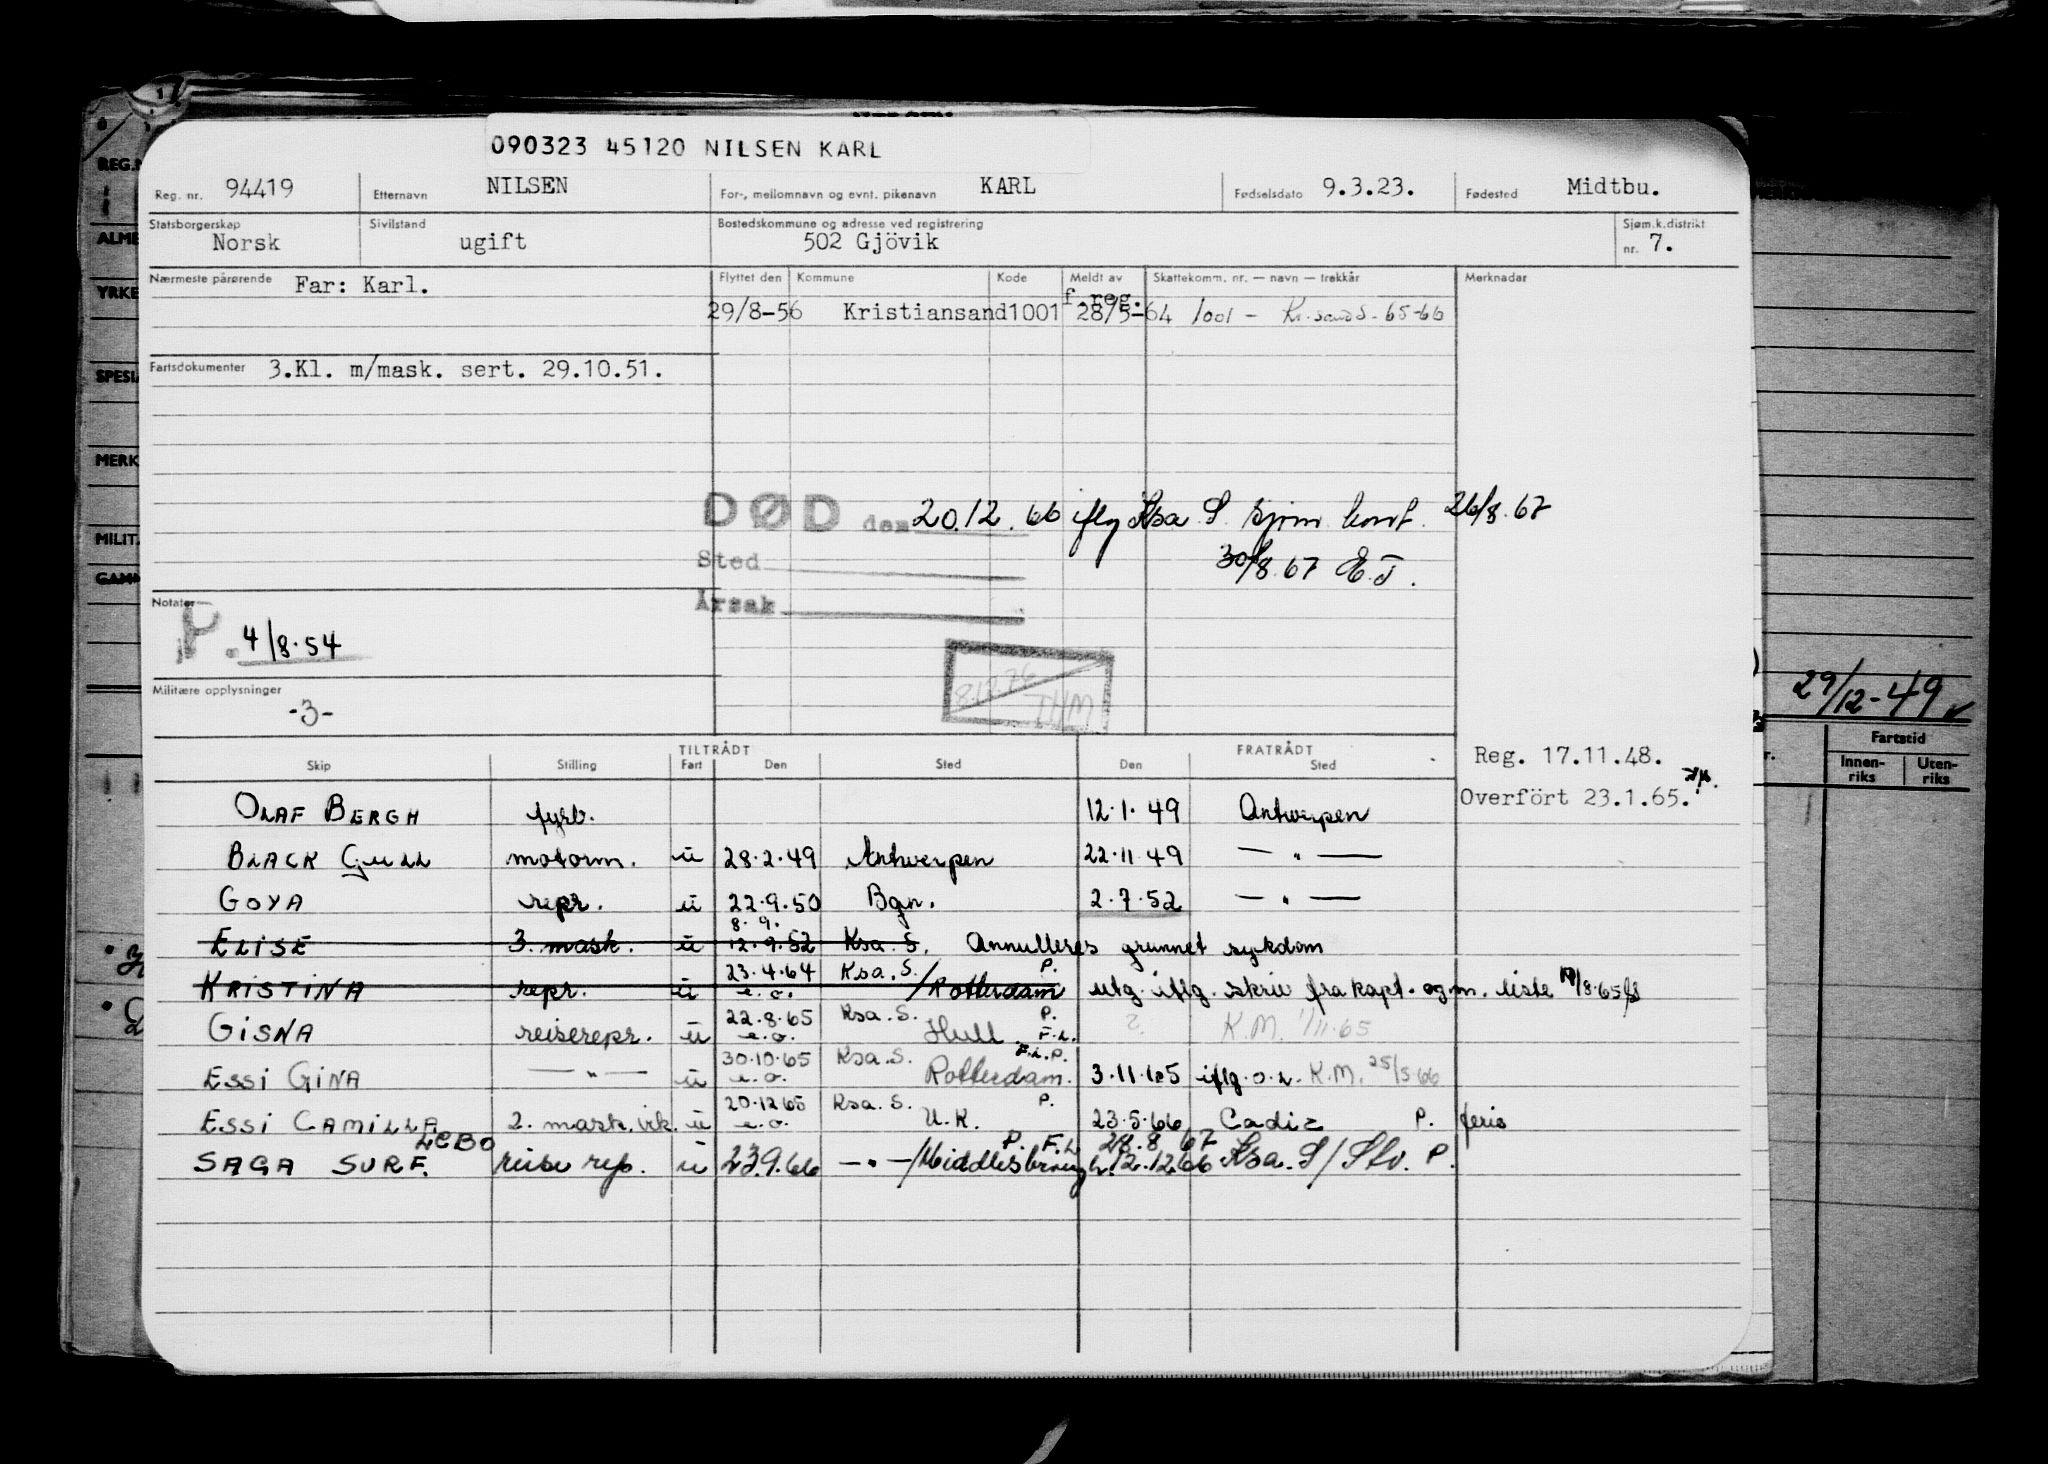 090323 45120 NILSEN KARL
Reg. nr. 94419 Etternavn NILSEN For-, mellomnavn og evnt. pikenavn KARL Fødselsdato 9.3.23. Fødested Midtbu.
Statsborgerskap Norsk Sivilstand ugift Bostedskommune og adresse ved registrering 502 Gjövik Sjøm.k.distrikt nr. 7.
Nærmeste pårørende Far: Karl. Flyttet den Kommune Kode Meldt av Skattekomm. nr. — navn — trekkår Merknader
f.reg.
29/8-56 Kristiansand 1001 28/5-64 1001 - Kr.sand S- 65-66
Fartsdokumenter 3.Kl. m/mask. sert. 29.10.51.
DØD den 20.12.66 iflg Ksa. S. sjøm kont. 26/8.67
Sted 30/8.67 E.T.
Årsak
Notater
4/8.54
8.12.76
THM
Militære opplysninger
-3-
29/12-49
TILTRÅDT FRATRÅDT
Skip Stilling Fart Den Sted Den Sted
Reg. 17.11.48.
Overfört 23.1.65.
Fartstid
Innen-riks Uten-riks
OLAF BERGH fyrb. 12.1.49 Antwerpen
BLACK GULL motorm. u 28.2.49 Antwerpen 22.11.49 — " —
GOYA repr. u 22.9.50 Bgn. 2.7.52 — " —
8.9.
ELISE 3. mask. u 12.9.52 Ksa. S. Annulleres grunnet sykdom
23.4.64 Ksa. S. P.
KRISTINA repr. u e.o. /Rotterdam utg. iflg. skriv fra kapt. og m. liste 19/8.65
22.8.65 Ksa. S. P.
GISNA reiserepr. u e.o. Hull F.L. ? K.M. 1/11.65
30.10.65 Ksa. S. F.L.P.
ESSI GINA — " — u e.o. Rotterdam. 3.11.65 iflg. o.r. K.M. 25/5 66
20.12.65 Ksa. S. P.
ESSI CAMILLA 2. mask. vik. u e.o. U.K. 23.5.66 Cadiz P. ferie
LEBO P. F.L 28.8 67
SAGA SURF. reise rep. u 23.9.66 — " —/Middlesbrough 12.12.66 Ksa. S/Slv. P.
REG.N
ALME
YRKE
SPESIA
MERK
MILIT.
GAMM